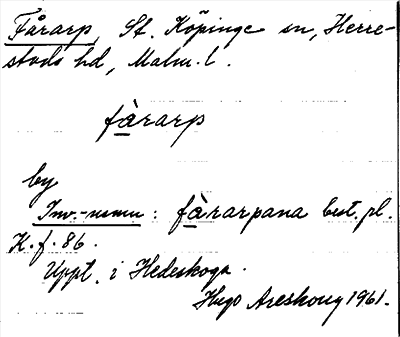 Fårarp, St. Köpinge sn, Herre-
stads hd, Malm. l.
fàrarp
by
Inv.-namn : fàrarpana best. pl.
K. f. 86.
Uppt. i Hedeskoga.
Hugo Areskoug 1961.